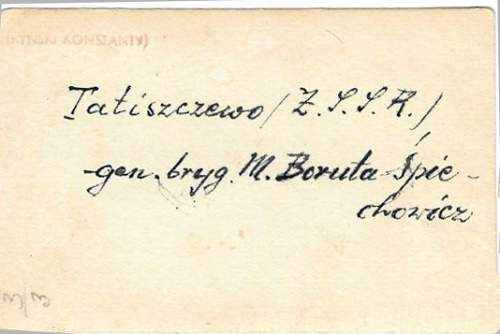 KONSTANTY)
Tatiszczewo (Z.S.S.R.)
-gen. bryg. M. Boruta-Śpie-
chowicz